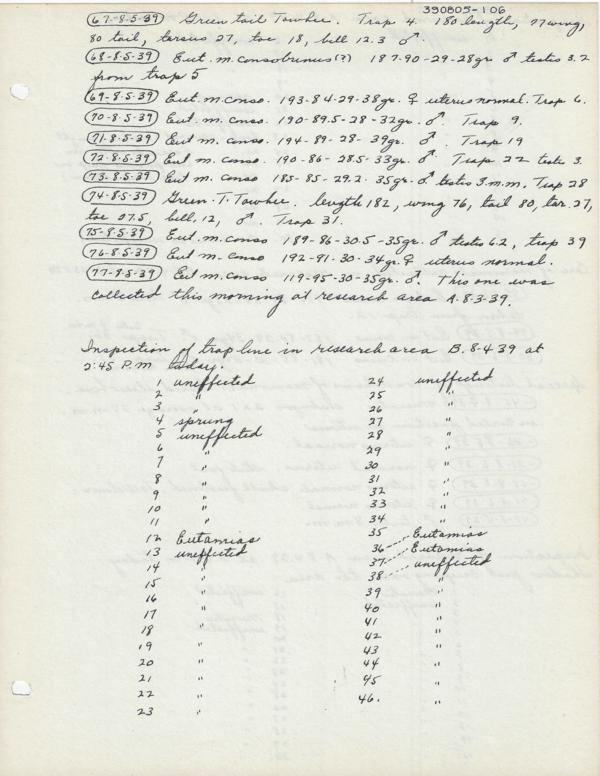 390805-106
67-8-5-39 Green tail Towhee. Trap 4. 180 length, 77 wing,
80 tail, tarsus 27, toe 18, bill 12.3 ♂.
68-8-5-39 Eut. m. consobrinus(?) 187-90-29-28gr ♂ testis 3.2
from trap 5
69-8-5-39 Eut. m. conso. 193-84-29-38gr. ♀ uterus normal. Trap 6.
70-8-5-39 Eut. m. conso. 190-89.5-28-32gr. ♂ Trap 9.
71-8-5-39 Eut. m. conso. 194-89-28-39gr. ♂ Trap 19
72-8-5-39 Eut m. conso. 190-86-28.5-33gr. ♂ Trap 22 testis 3.
73-8-5-39 Eut m. conso 185-85-29.2-35gr. ♂ testis 3.m.m. Trap 28
74-8-5-39 Green. T. Towhee. length 182, wing 76, tail 80, tar. 27,
toe 27.5, bill, 12, ♂. Trap 31.
75-8-5-39 Eut. m. conso 189-86-30.5-35gr. ♂ testis 6.2, trap 39
76-8-5-39 Eut m. conso 192-91-30-34gr. ♀ uterus normal.
77-8-5-39 Eut m. conso 119-95-30-35gr. ♂. This one was
collected this morning at research area A. 8-3-39.
Inspection of trap line in research area B. 8-4-39 at
2:45 P.M. today.
1 uneffected 24 uneffected
2 " 25 "
3 " 26 "
4 sprung 27 "
5 uneffected 28 "
6 " 29 "
7 " 30 "
8 " 31 "
9 " 32 "
10 " 33 "
11 " 34 "
12 Eutamias 35 Eutamias
13 uneffected 36 Eutamias
14 " 37 uneffected
15 " 38 "
16 " 39 "
17 " 40 "
18 " 41 "
19 " 42 "
20 " 43 "
21 " 44 "
22 " 45 "
23 " 46. "